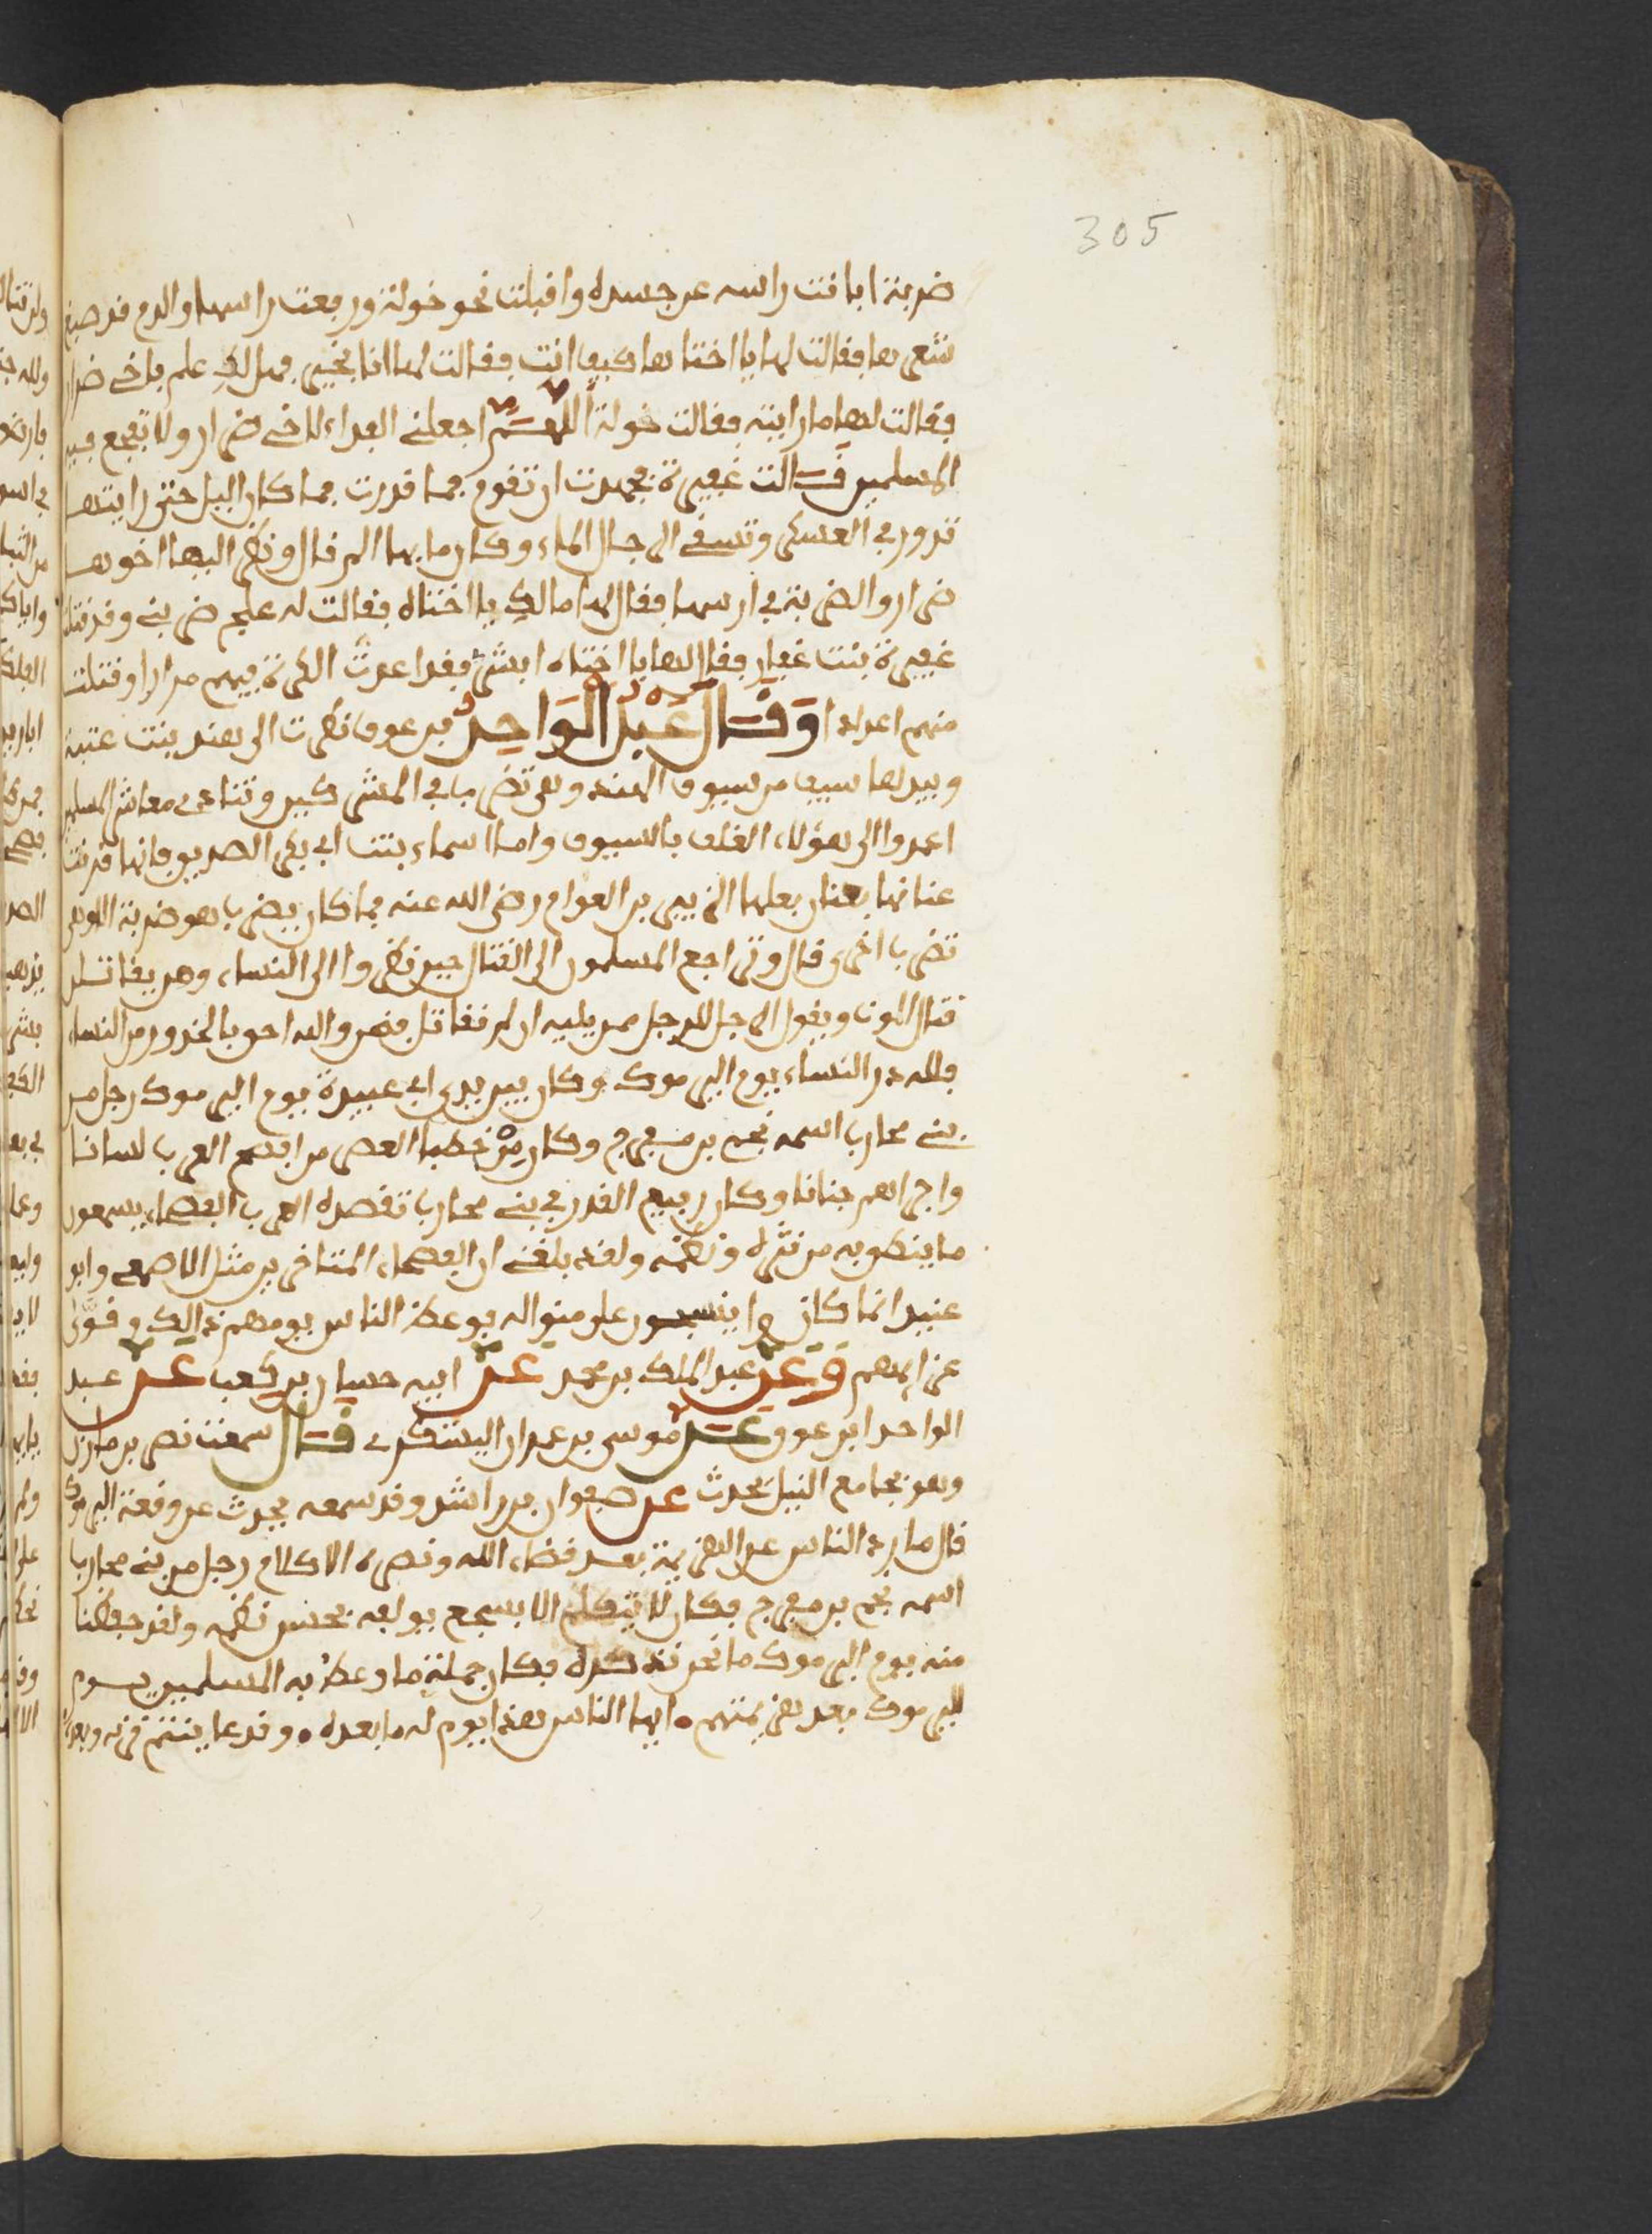 305
ضربة ابانت راسه عن جسده واقبلت نحو خولة ورفعت راسها والدم قد صبغ
شعرها فقالت لها يا اختاها كيف انت فقالت لها انا بخير فهل لك علم باخي ضرار
فقالت لها ما رايته فقالت خولة اللهم اجعلني الفداء لاخي ضرار ولا تفجع فيه
المسلمين قالت غفيرة فجهدت ان تقوم فما قدرت فما كان اليل حتى رايتها
تدور في العسكر وتسقي الرجال الماء وكان ما بها الم قال ونظر اليها اخوها
ضرار والضربة في راسها فقال لها ما لك يا اختاه فقالت له علج ضربني وقد قتلته
غفيرة بنت غفار فقال لها يا اختاه ابشري فقد اعدت الكرة فيهم مرارا وقتلت
منهم اعدادا وقال عبد الواحد بن عوف نظرت الى هند بنت عتبة
وبيدها سيف من سيوف الهند وهي تضرب في المشركين وتنادي معاشر المسلمين
اعمدوا الى هؤلاء الغلف بالسيوف واما اسماء بنت ابي بكر الصديق فانها قرنت
عنانها بعنان بعلها الزبير بن العوام رضي الله عنه فما كان يضرب هو ضربة الا وهي
تضرب اخرى قال وتراجع المسلمون الى القتال حين نظروا الى النساء وهن يقاتلن
قتال الموت ويقول الرجل للرجل ممن يليه ان لم نقاتل فنحن والله احق بالخدور من النساء
فلله در النساء يوم اليرموك وكان بين يدي ابي عبيدة يوم اليرموك رجل من
بني محارب اسمه نجم بن مفرج وكان من خطباء العصر من افصح العرب لسانا
واجراهم جنانا وكان رفيع القدر في بني محارب تقصده العرب الفصحاء يسمعون
ما ينطق به من نثره ونظمه ولقد بلغني ان الفصحاء المتاخرين مثل الاصمعي وابو
عبيد انما كانوا ينسجون على منواله فوعظ الناس يومهم ذالك وقوى
عزايمهم وعن عبد الملك بن محمد عن ابيه حسان بن كعب عن عبد
الواحد ابن عوف عن موسى بن عمران اليشكري قال سمعت نصر بن مازن
وهو بجامع النيل يحدث عن صفوان بن راشد وقد سمعه يحدث عن وقعة اليرموك
قال ما رد الناس عن الهزيمة بعد قضاء الله ونصره الا كلام رجل من بني محارب
اسمه نجم بن مفرج فكان لا يتكلم الا بسجع يولفه بحسن نظمه ولقد حفظنا
منه يوم اليرموك ما نحن نذكره فكان جملة ما وعظ به المسلمين يوم
اليرموك بعد هزيمتهم ايها الناس هذا يوم له ما بعده وقد عاينتم قربه وبعده